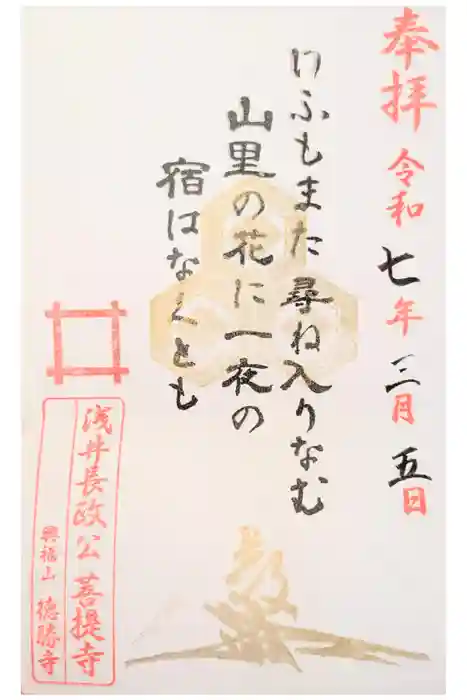 奉拝
令和七年三月五日
けふもまた尋ね入りなむ
山里の花に一夜の
宿はなくとも
浅井長政公 菩提寺
興福山 徳勝寺